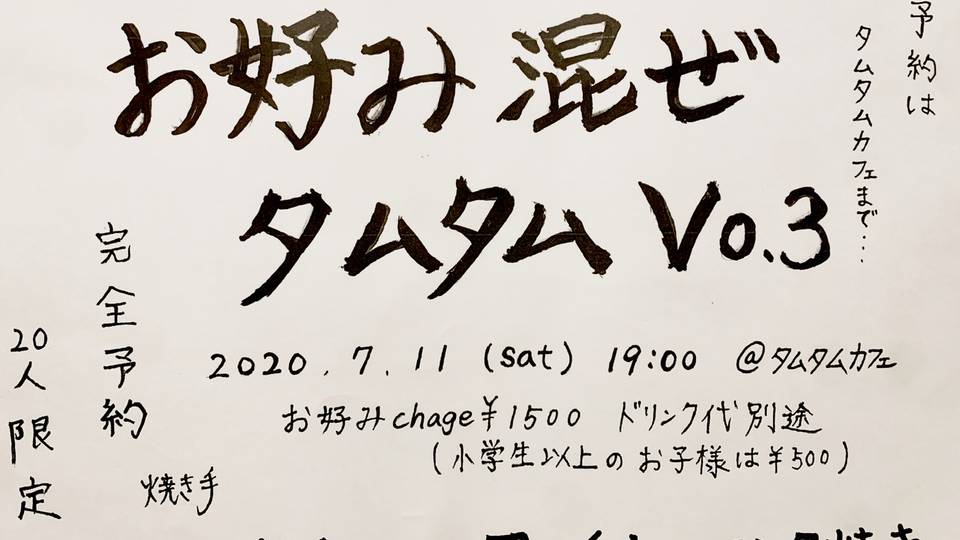 お好み混ぜ
タムタム Vo.3
予約は
タムタムカフェまで...
完全予約
20人限定
2020.7.11 (sat) 19:00 @タムタムカフェ
お好みchage¥1500 ドリンク代別途
(小学生以上のお子様は¥500)
焼き手